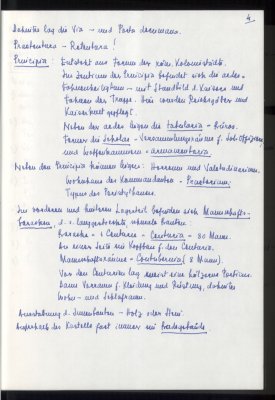 4
Dahinter lag die Via – und Porta decumana.
Praetentura – Retentura!
Principia: Entsteht aus Forum der röm. Koloniestädte.
Im Zentrum der Principia befindet sich die aedes –
Fahnenheiligtum – mit Standbild d. Kaisers und
Fahnen der Truppe. Hier wurden Reichsgötter und
Kaiserkult gepflegt.
Neben der aedes liegen die tabularia – Büros.
Ferner die Scholae – Versammlungsräume f. Offiziere
und Waffenkammern – armamentaria.
Neben den Principia können liegen: Horreum und Valetudinarium.
Wohnhaus des Kommandanten – Praetorium:
Typus des Peristylhauses.
Im vorderen und hinteren Lagerteil befinden sich Mannschafts-
baracken, d. s. langgestreckte schmale Bauten:
Baracke = 1 Centurie – Centuria – 80 Mann.
An einer Seite ein Kopfbau f. den Centurio.
Mannschaftsräume = Contubernia (8 Mann).
Vor den Centurien lag meist eine hölzerne Porticus.
Dann Vorraum f. Kleidung und Rüstung, dahinter
Wohn- und Schlafraum.
Ausstattung d. Innenbauten – Holz oder Stein.
Außerhalb des Kastells fast immer ein Badegebäude.